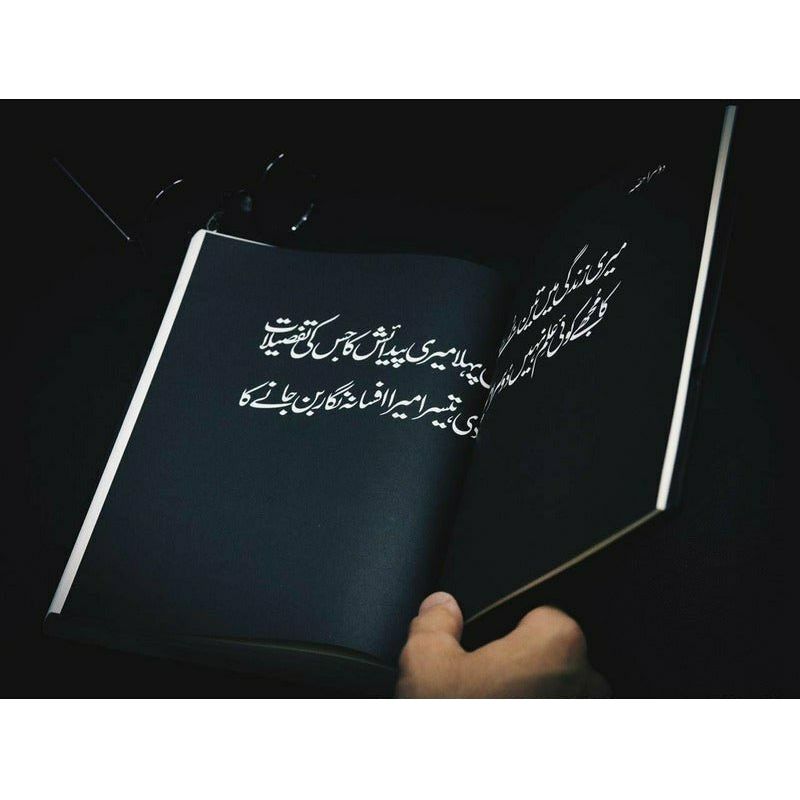 دوسرا حصہ
میری زندگی میں تین پہلا میری پیدائش کا جس کی تفصیلات
کا مجھے کوئی علم نہیں، دوسرا تیسرا میرا افسانہ نگار بن جانے کا